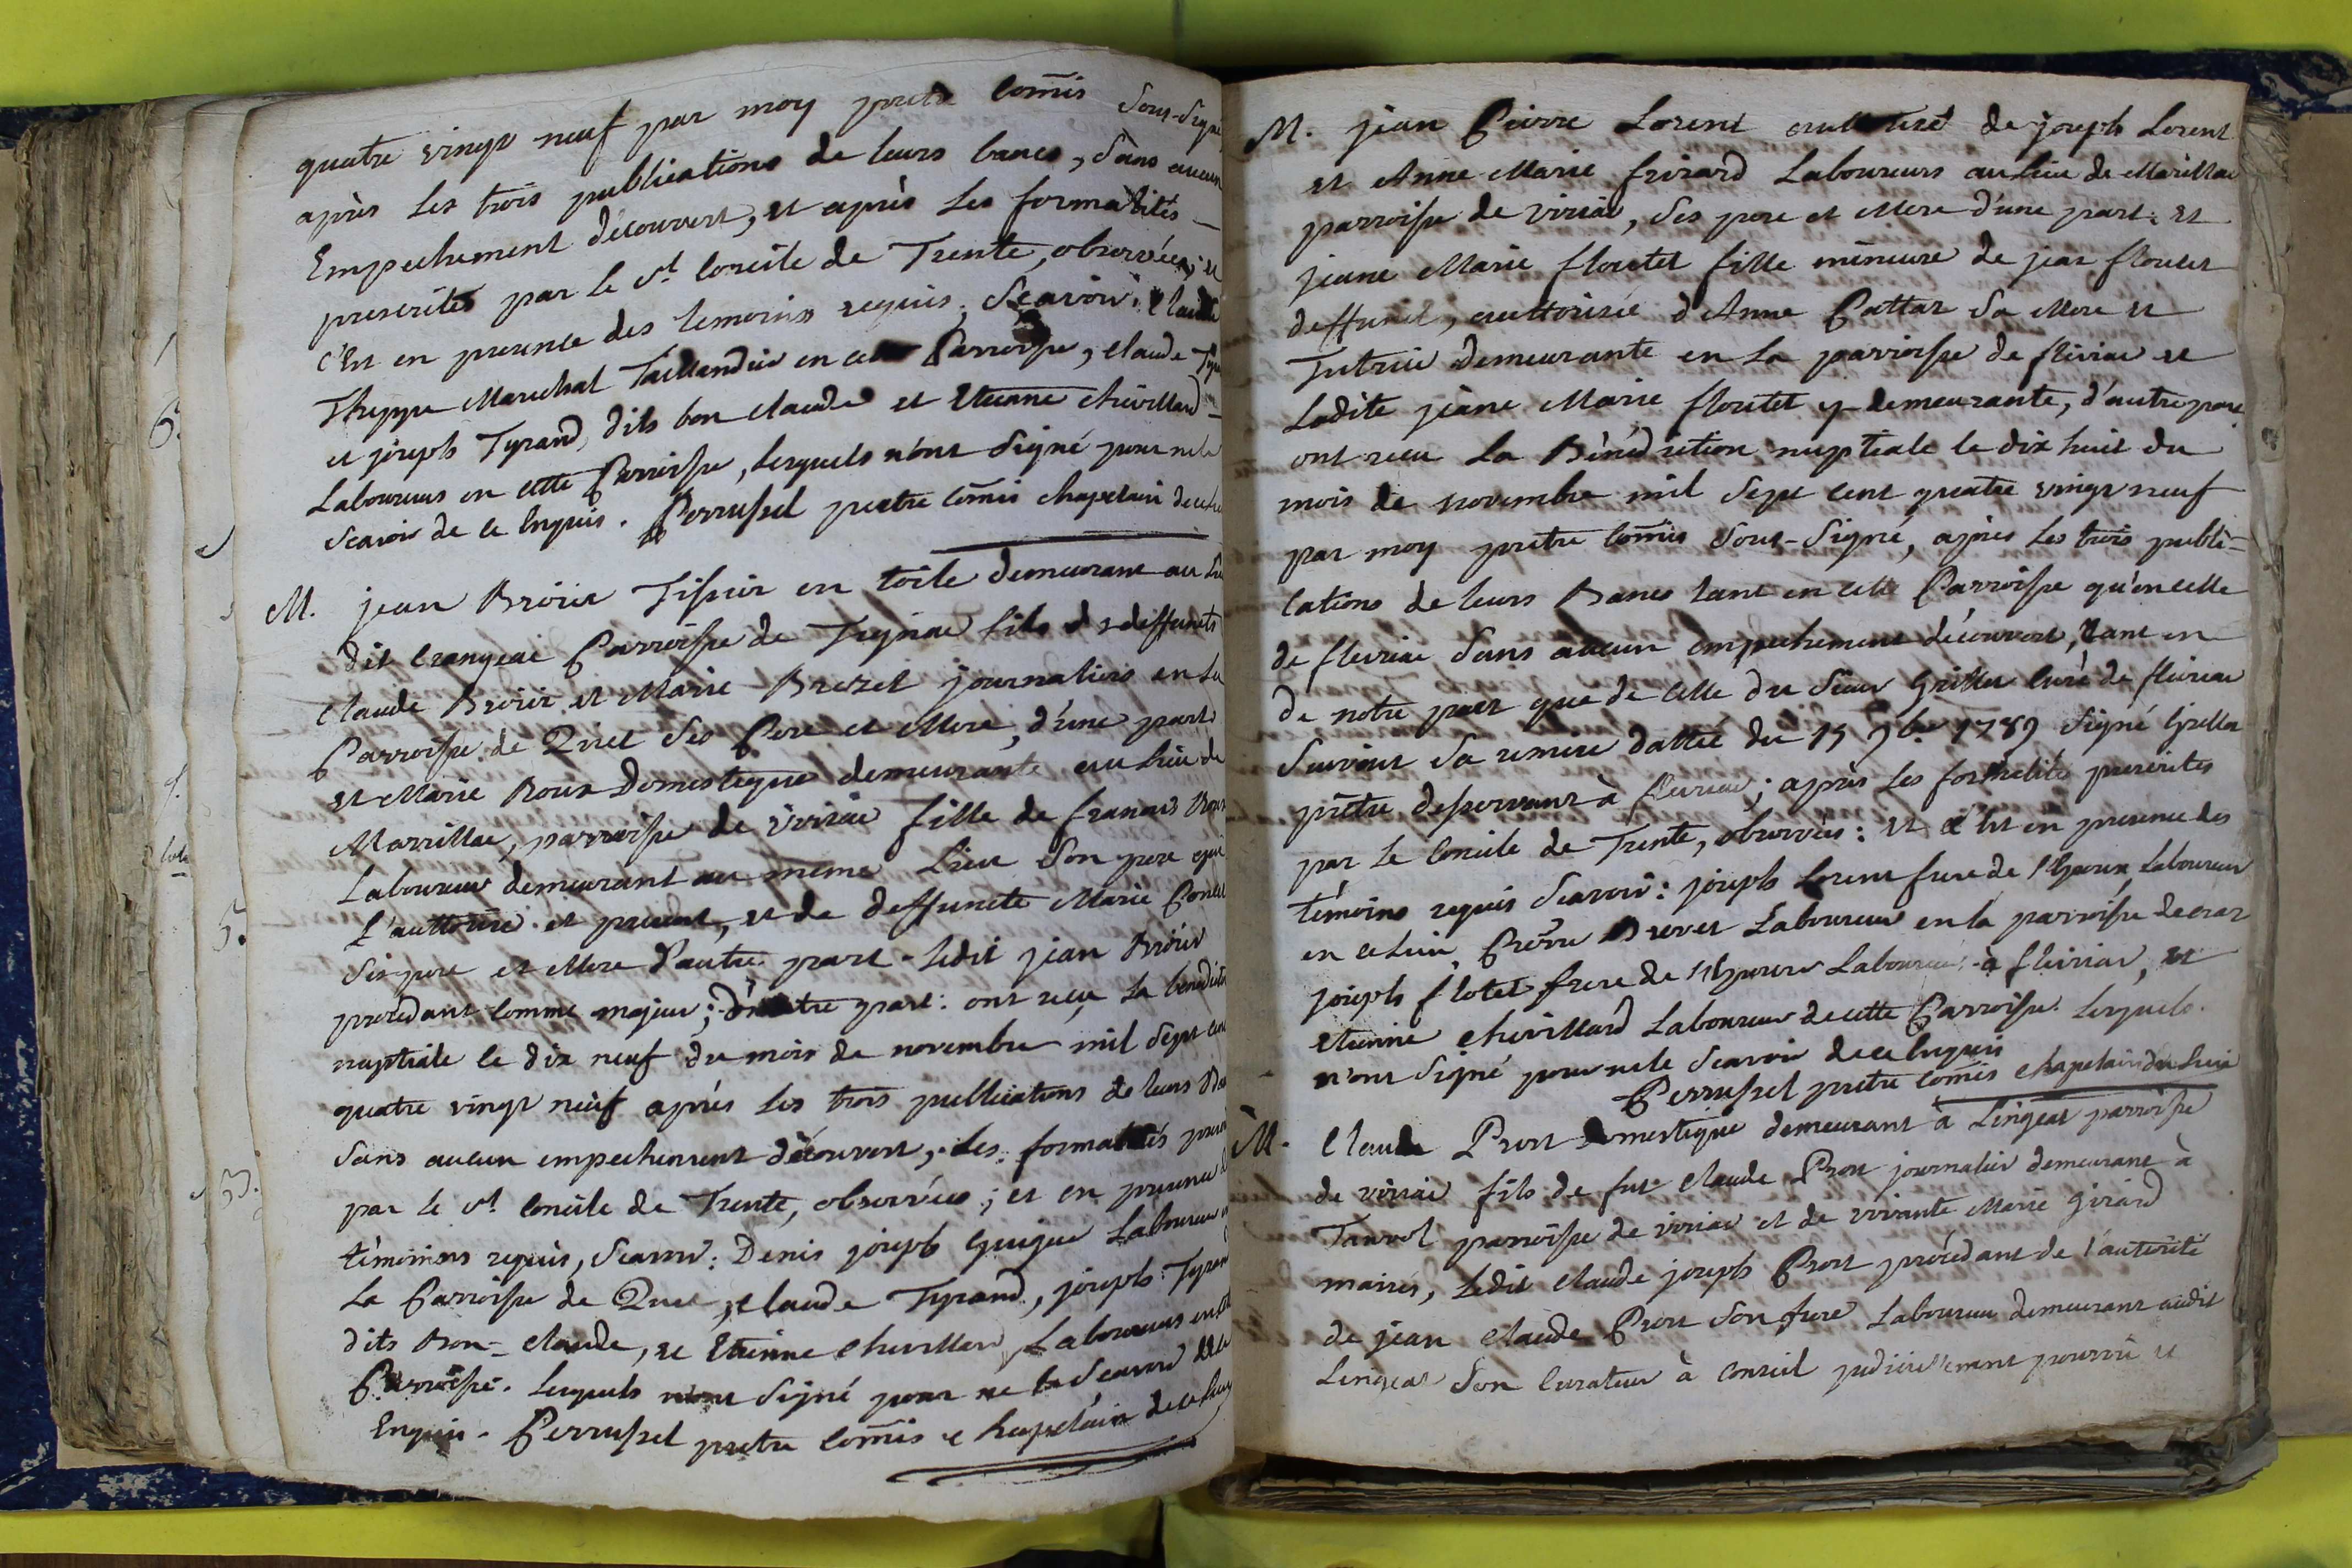 quatre vingt neuf par moy pretre com̃is sous-signé
après les trois publications de leurs bancs, sans aucun
Empechement découvert, et après les formalités
prescrites par le st concile de Trente, observées; et
c'Est en presence des temoins requis, scavoir: Claude
marechal Taillandier en cette Parroisse, claude
et joseph Tyrand dits bon claude et Etienne chevillard
Laboureurs en cette Parroisse, lesquels n'ont signé pour ne le
scavoir de ce Enquis. Perrussel pretre com̃is chapelain de ce lieu
M. jean Broier Tissier en toile demeurant au lieu
dit Crangeac Parroisse de fils des deffunts
claude Broier et Marie Brezet journaliers en la
Parroisse de Ses Pere et Mere, d'une part
et Marie Roux Domestique demeurante au lieu de
Marillac, parroisse de viriac fille de francois Roux
Laboureur demeurant au meme Lieu son pere qui
L'authorise et present, et de deffuncte Marie
Ses pere et Mere d'autre part. Ledit jean Broier
procedant comme majeur; d'autre part: ont recu la benediction
nuptiale le dix neuf du mois de novembre mil sept cent
quatre vingt neuf après les trois publications de leurs
sans aucun empechement découvert, les formalités
par le st concile de Trente, observées; et en presence de
témoins requis, scavoir: Denis joseph Guigue Laboureur en
La Parroisse de claude Tyrand, joseph Tyrand
dits Bon-claude, et Etienne chevillard Laboureurs en cette
Parroisse. Lesquels n'ont signé pour ne le scavoir de ce
Enquis. Perrussel pretre com̃is chapelain de ce lieu
M. jean Pierre Lorent authorisé de joseph Lorent
et Anne Marie frerard Laboureurs au lieu de Marillac
parroisse de viriac, ses pere et Mere d'une part: et
jeane Marie floutet fille mineure de jean floutet
deffunct, authorisée d'Anne Pattar sa Mere et
Tutrice demeurante en la parroisse de fleiriac et
Ladite jeane Marie floutet y demeurante, d'autre part
ont recu La Bénédiction nuptiale le dix huit du
mois de novembre mil sept cent quatre vingt neuf
par moy pretre com̃is sous-signé, après les trois publi-
cations de leurs Bancs tant en cette Parroisse qu'en celle
de fleiriac sans aucun empechement découvert, tant en
de notre part que de celle du sieur Grillet curé de fleiriac
suivant sa remise dattée du 15 9bre 1789 signé Grillet
prêtre desservant à fleiriac; après les formalités prescrites
par le concile de Trente, observées: et c'Est en presence des
témoins requis scavoir: joseph Lorent frere de l'Epoux Laboureur
en ce lieu, Pierre Brevet Laboureur en la parroisse de cras
joseph flotet frere de l'Epouse Laboureur à fleiriac, et
etienne chevillard Laboureur de cette Parroisse. Lesquels
n'ont signé pour ne le scavoir de ce Enquis
Perrussel pretre com̃is chapelain du lieu
M. Claude Pront domestique demeurant à Lingeat parroisse
de viriac fils de fut claude Pront journalier demeurant à
Tanvol parroisse de viriac et de vivante Marie Girard
mariés, Ledit claude joseph Pront procédant de l'autorité
de jean claude Pront son frere Laboureur demeurant audit
Lingeat son curateur à conseil judiciellement pourvû et